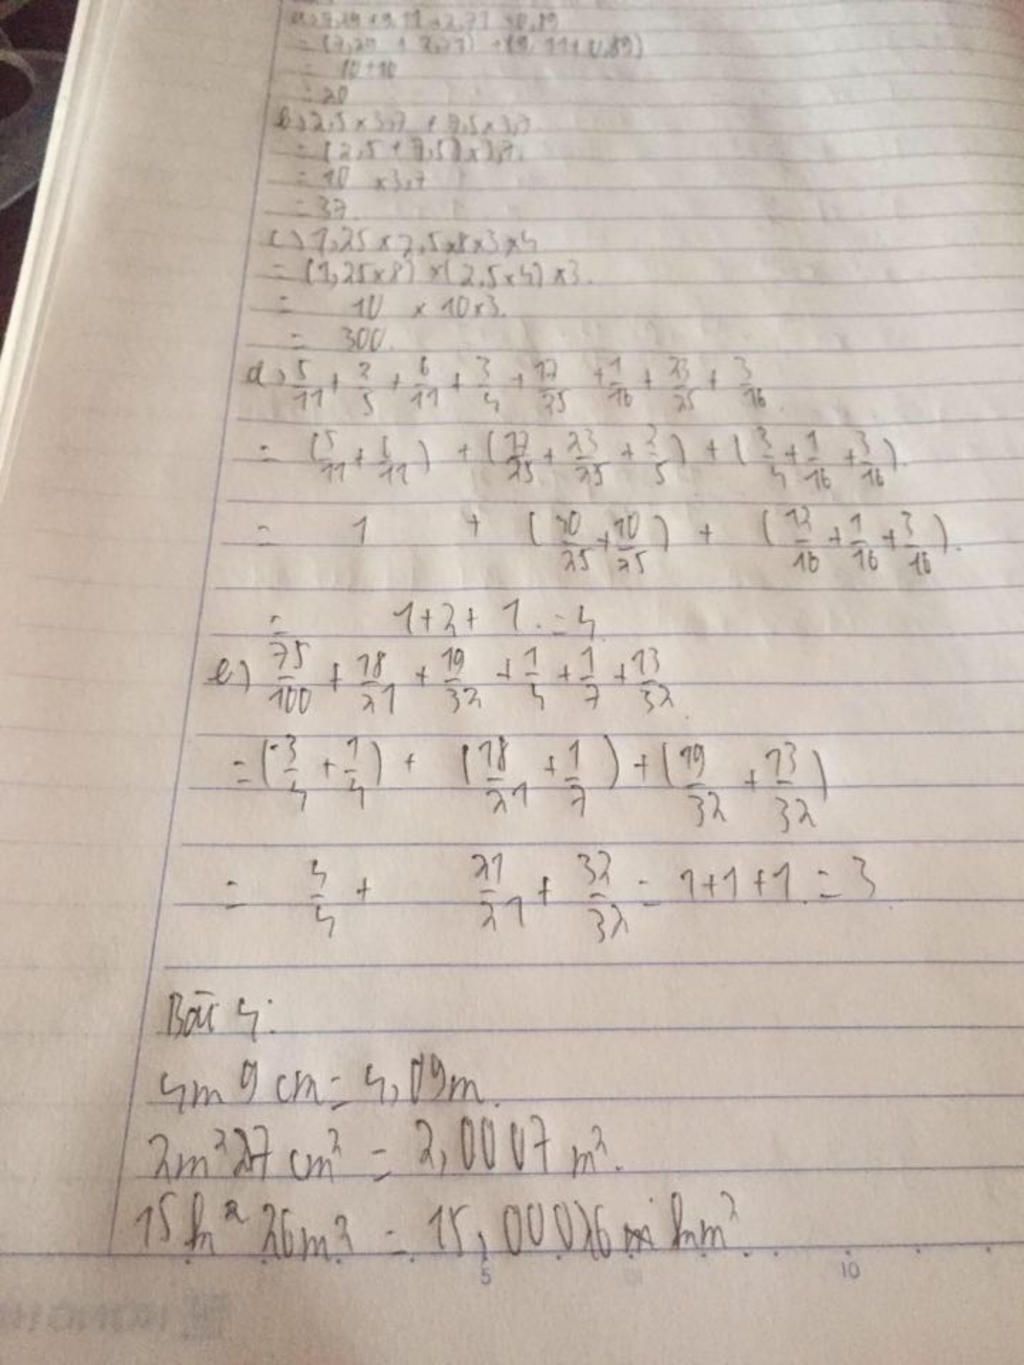 = 10+10
= 20
b) 2,5 x 3,7 + 7,5 x 3,7
= (2,5 + 7,5) x 3,7
= 10 x 3,7
= 37
c) 1,25 x 2,5 x 8 x 3 x 4
= (1,25 x 8) x (2,5 x 4) x 3.
= 10 x 10 x 3.
= 300.
d) 5/11 + 2/5 + 6/11 + 3/4 + 17/25 + 1/16 + 23/25 + 3/16
= (5/11 + 6/11) + (17/25 + 23/25 + 2/5) + (3/4 + 1/16 + 3/16).
= 1 + (40/25 + 10/25) + (12/16 + 1/16 + 3/16).
= 1+2+ 1. = 4
e) 75/100 + 18/21 + 19/32 + 1/4 + 1/7 + 13/32
= (3/4 + 1/4) + (18/21 + 1/7) + (19/32 + 13/32)
= 4/4 + 21/21 + 32/32 = 1+1+1 = 3
Bài 4:
4m 9 cm = 4,09m.
2m² 27 cm² = 2,0007 m².
26m² = 15,00026 hm²
5 10